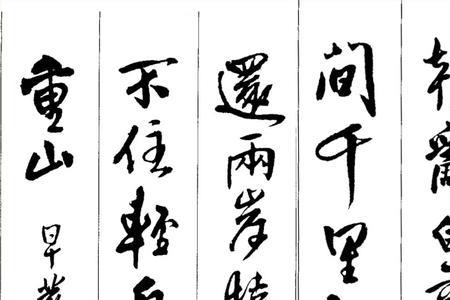 朝辭白
間千里
還兩岸
不住輕
重山
早發